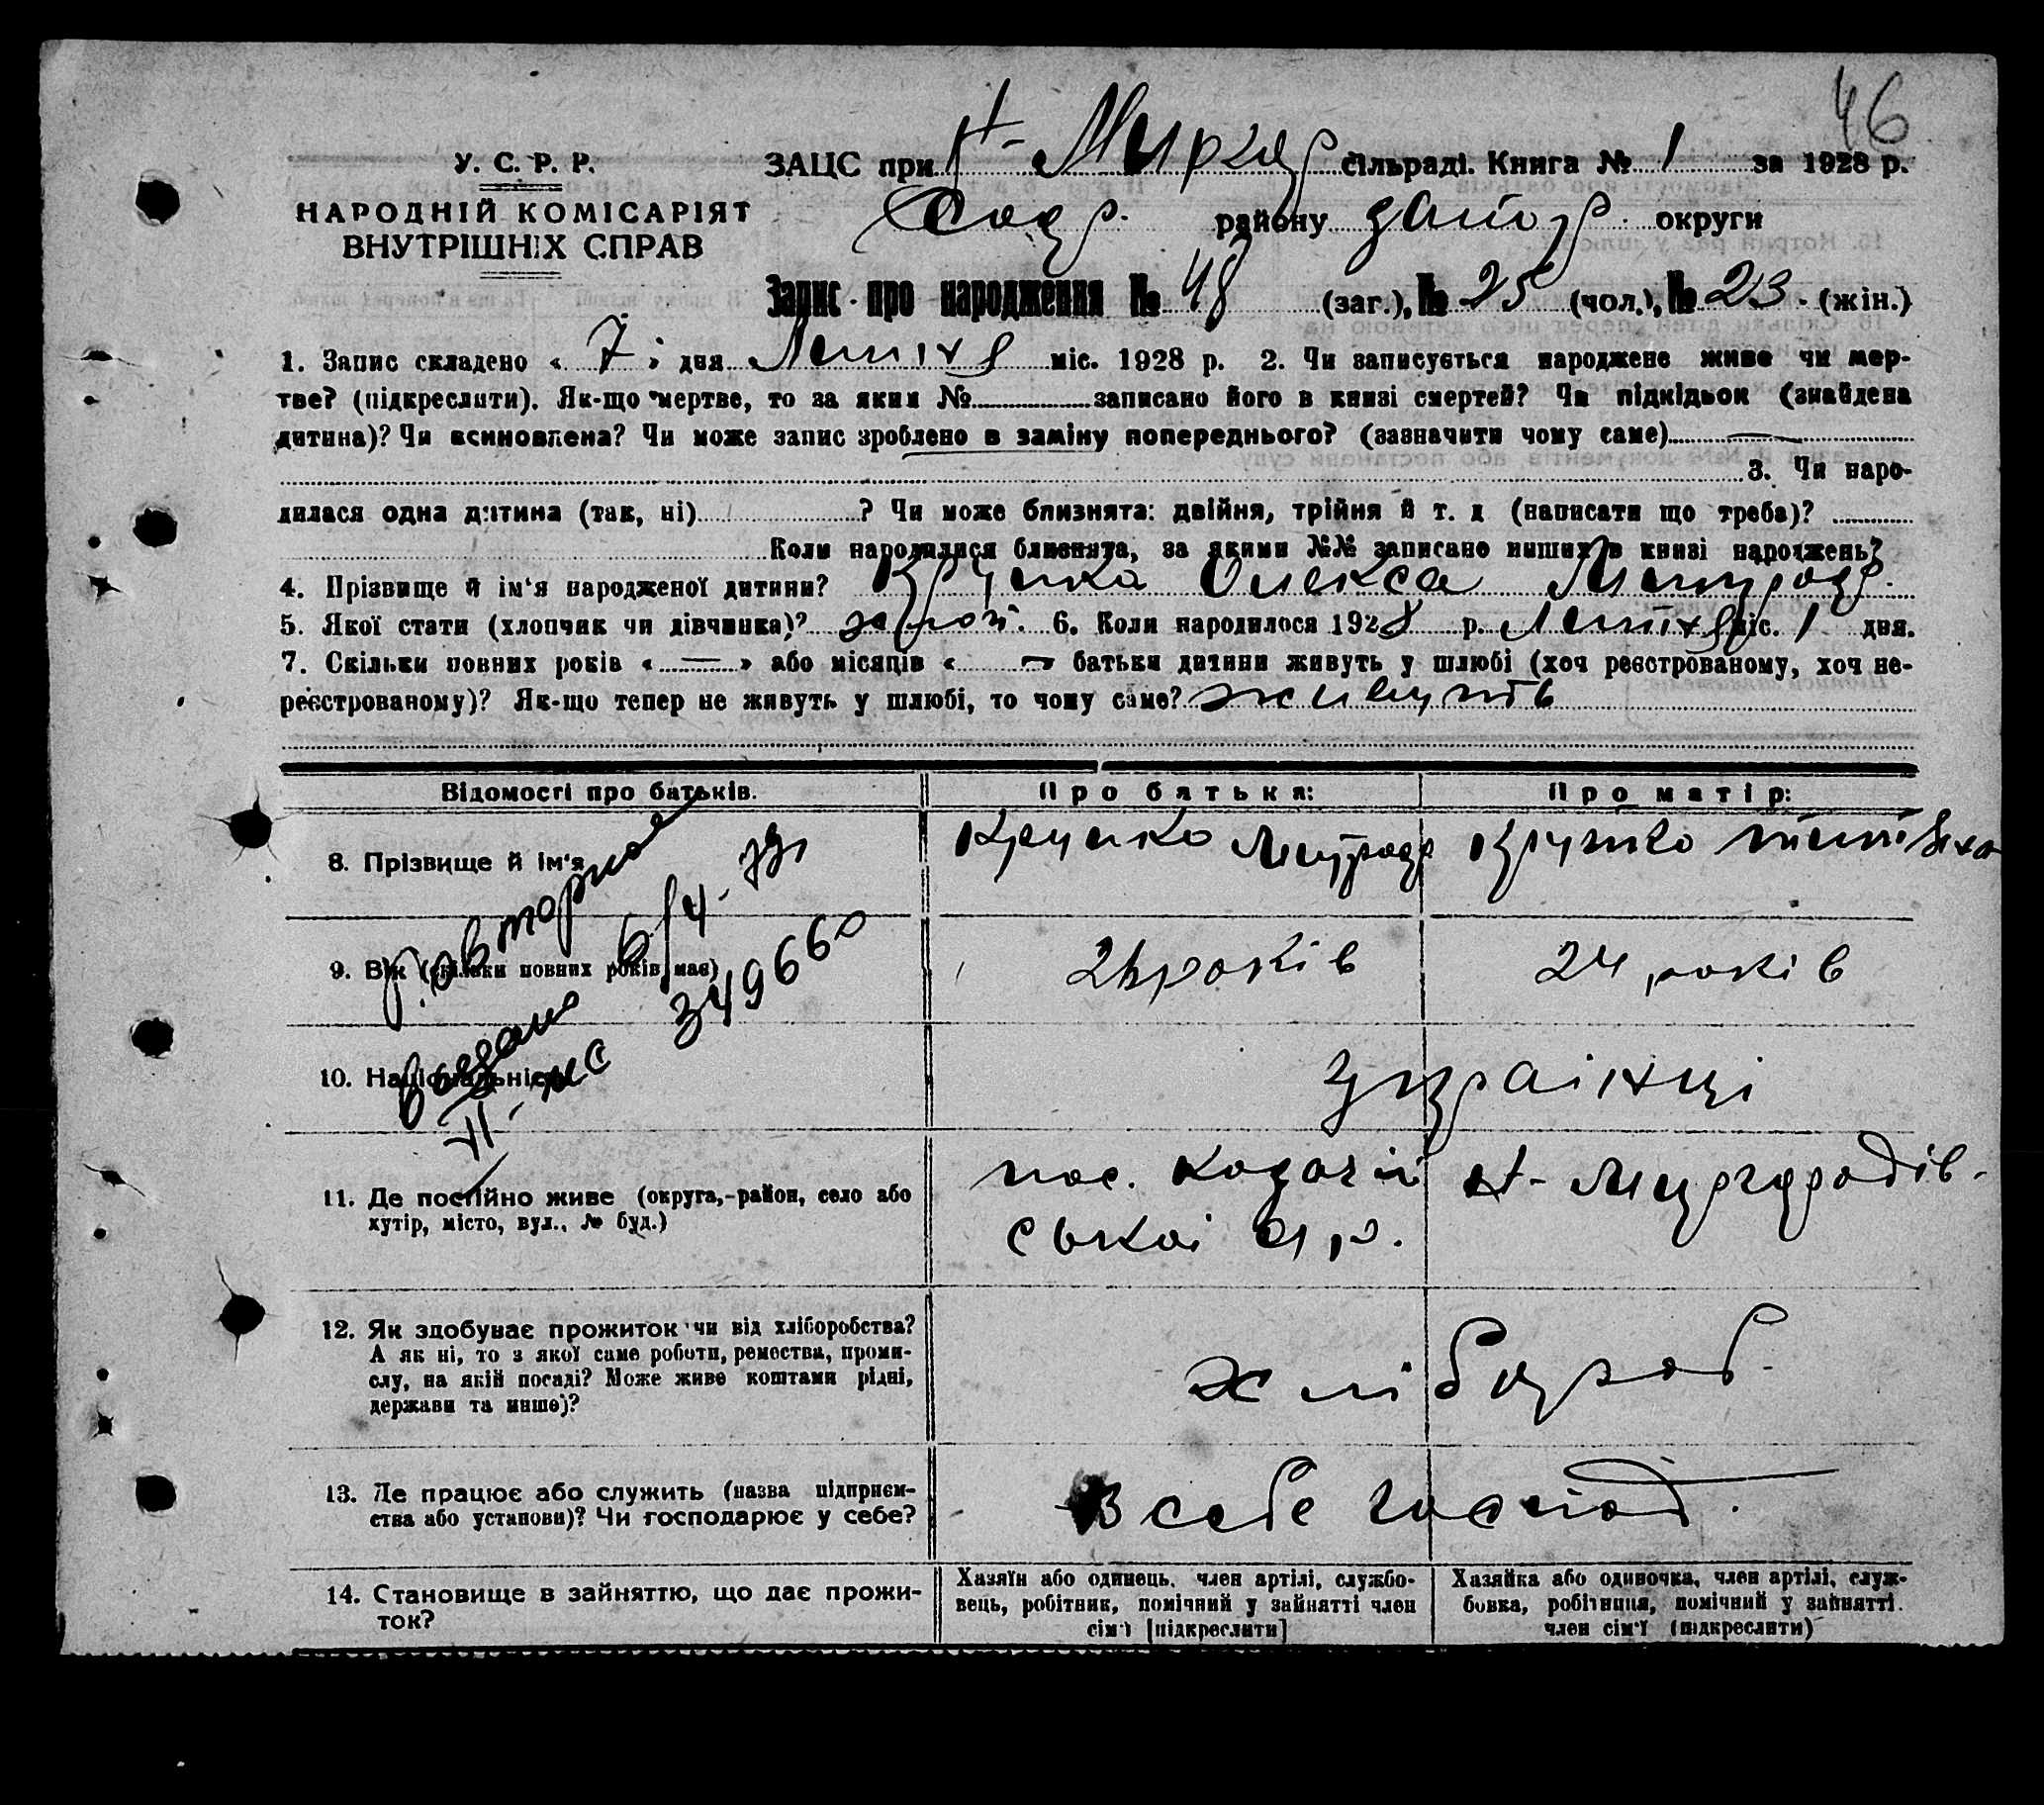 46
У. С. Р. Р.
НАРОДНІЙ КОМІСАРІЯТ
ВНУТРІШНІХ СПРАВ
ЗАЦС при Н- Миргор сільраді. Книга № 1 за 1928 р.
району запор. округи
Запис про народження № 48 (заг.), № 25 (чол.), № 23. (жін.)
1. Запис складено « 7 » дня Липня міс. 1928 р. 2. Чи записується народжене живе чи мер-
тве? (підкреслити). Як-що мертве, то за яким № записано його в книзі смертей? Чи підкідьок (знайдена
дитина)? Чи всиновлена? Чи може запис зроблено в заміну попереднього? (зазначити чому саме) —
3. Чи наро-
дилася одна дитина (так, ні) ? Чи може близнята: двійня, трійня й т. д (написати що треба)?
Коли народилися близнята, за якими №№ записано инших в книзі народжень?
4. Прізвище й ім'я народженої дитини? Крупка Олекса Митрофа.
5. Якої стати (хлопчик чи дівчинка)? 6. Коли народилося 1928 р. Липня міс. 1 дня.
7. Скільки повних років « — » або місяців « — батьки дитини живуть у шлюбі (хоч реєстрованому, хоч не-
реєстрованому)? Як-що тепер не живуть у шлюбі, то чому саме? живуть
Відомості про батьків. Про батька: Про матір:
8. Прізвище й ім'я Крупко Крупко
повторное
6/4-
9. Вік (скільки повних років має) років 24 років
выдано
349660
10. Національність українці
11. Де постійно живе (округа,-район, село або
хутір, місто, вул., № буд.)
пос.
ської
12. Як здобуває прожиток чи від хліборобства?
А як ні, то з якої саме роботи, ремества, проми-
слу, на якій посаді? Може живе коштами рідні,
держави та инше)?
хлібороб.
13. Де працює або служить (назва підприєм-
ства або установи)? Чи господарює у себе?
В себе господ.
14. Становище в зайняттю, що дає прожи-
ток?
Хазяїн або одинець, член артілі, службо-
вець, робітник, помічний у зайнятті член
сім'ї [підкреслити]
Хазяйка або одиночка, член артілі, служ-
бовка, робітниця, помічний у зайнятті.
член сім'ї (підкреслити)